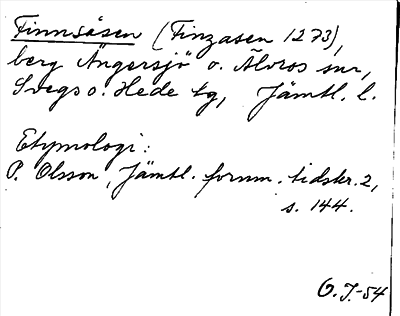 Finnsåsen (Finzasen 1273),
berg Ängersjö o. Älvros snr,
Svegs o. Hede tg, Jämtl. l.
Etymologi:
P. Olsson, Jämtl. fornm. tidskr. 2,
s. 144.
O.J.-54